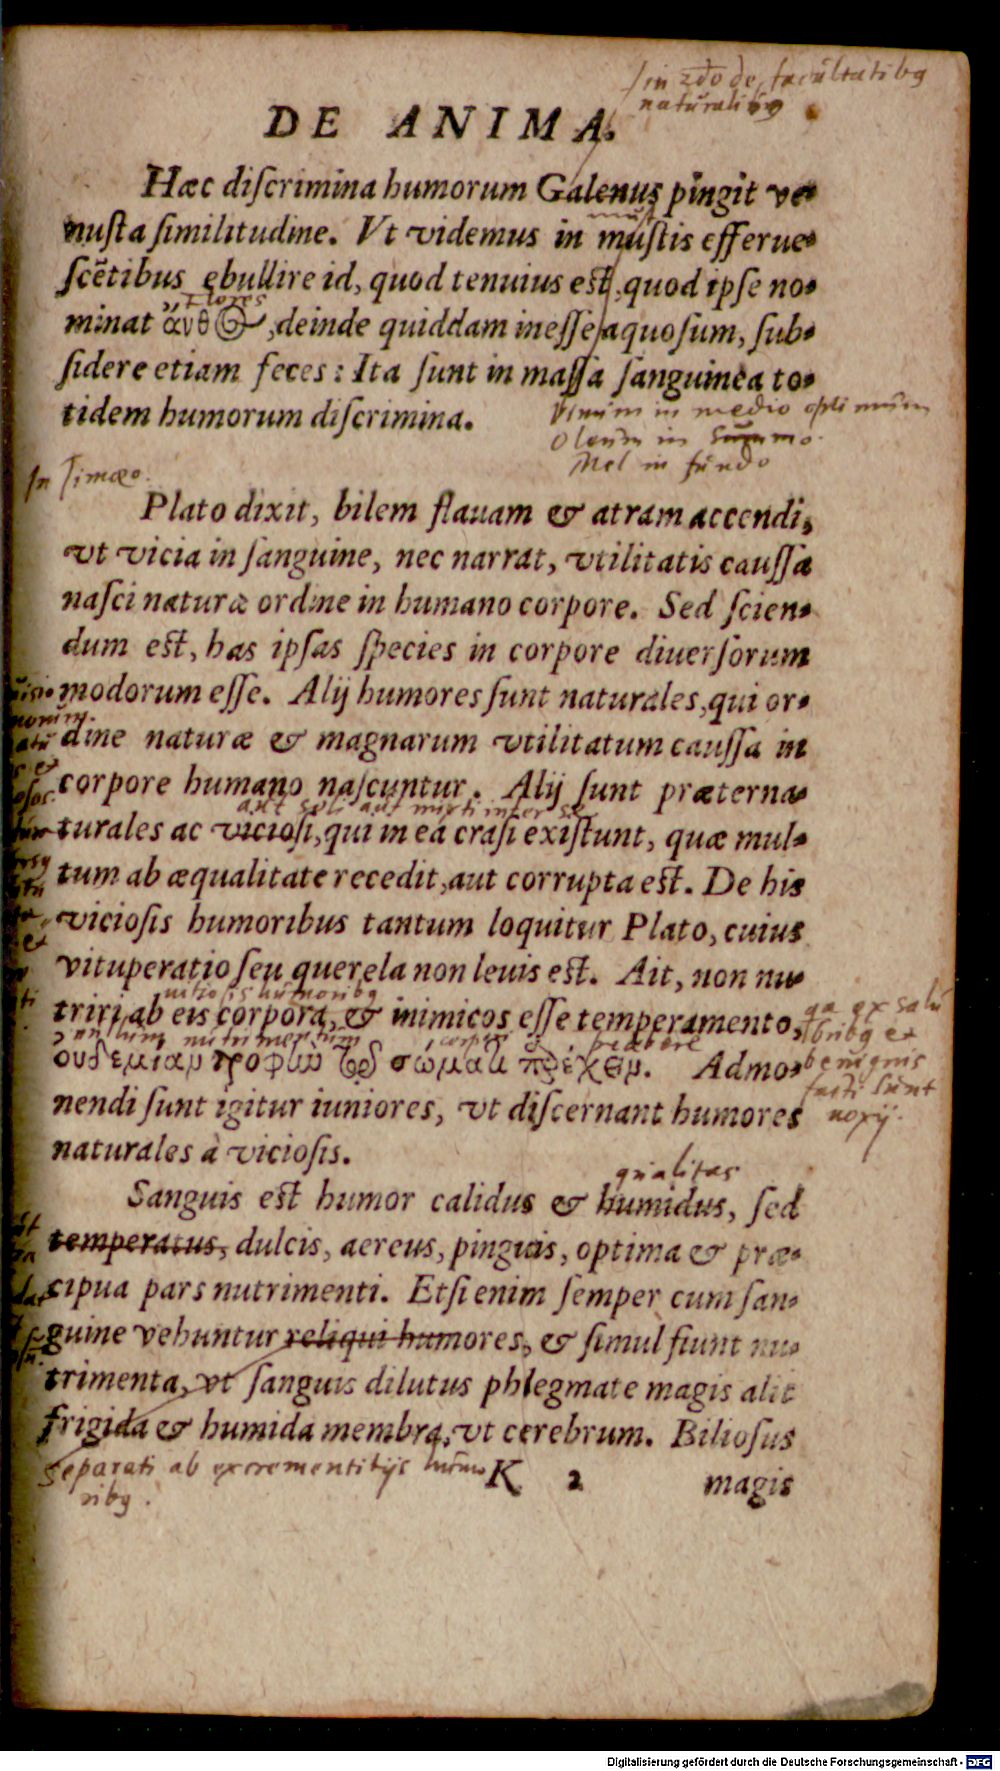 in 2do de facultatibq
naturalibq
DE ANIMA.
Hæc diſcrimina humorum Galenus pingit ve-
nuſta ſimilitudine. Vt videmus in muſtis efferue-
ſcẽtibus ebullire id, quod tenuius eſt, quod ipſe no-
flores
minat ἄνθος, deinde quiddam ineſſe aquoſum, ſub-
ſidere etiam feces: Ita ſunt in maſſa ſanguinea to-
tidem humorum diſcrimina.
Vinum in medio optimum
Oleum in Summo.
Mel in fundo
In Timæo.
Plato dixit, bilem flauam & atram accendi,
vt vicia in ſanguine, nec narrat, vtilitatis cauſſa
naſci naturæ ordine in humano corpore. Sed ſcien-
dum eſt, has ipſas ſpecies in corpore diuerſorum
modorum eſſe. Alij humores ſunt naturales, qui or-
dine naturæ & magnarum vtilitatum cauſſa in
corpore humano naſcuntur. Alij ſunt præterna-
aut soli aut mixti inter se
turales ac vicioſi, qui in ea craſi exiſtunt, quæ mul-
tum ab æqualitate recedit, aut corrupta eſt. De his
vicioſis humoribus tantum loquitur Plato, cuius
vituperatio ſeu querela non leuis eſt. Ait, non nu-
uitiosis humoribq
triri ab eis corpora, & inimicos eſſe temperamento,
nullum nutrimentum corpori præbere
οὐδεμίαν τροφὴν τῷ σώματι παρέχειν. Admo-
qa ex salu
bribq et
benignis
facti sunt
noxij.
nendi ſunt igitur iuniores, vt diſcernant humores
naturales à vicioſis.
qualitas
Sanguis eſt humor calidus & humidus, ſed
temperatus, dulcis, aereus, pinguis, optima & præ-
cipua pars nutrimenti. Etſi enim ſemper cum ſan-
guine vehuntur reliqui humores, & ſimul fiunt nu-
trimenta, vt ſanguis dilutus phlegmate magis alit
frigida & humida membra, vt cerebrum. Bilioſus
separati ab excrementitijs humo
ribq.
K 2 magis
Digitalisierung gefördert durch die Deutsche Forschungsgemeinschaft - DFG